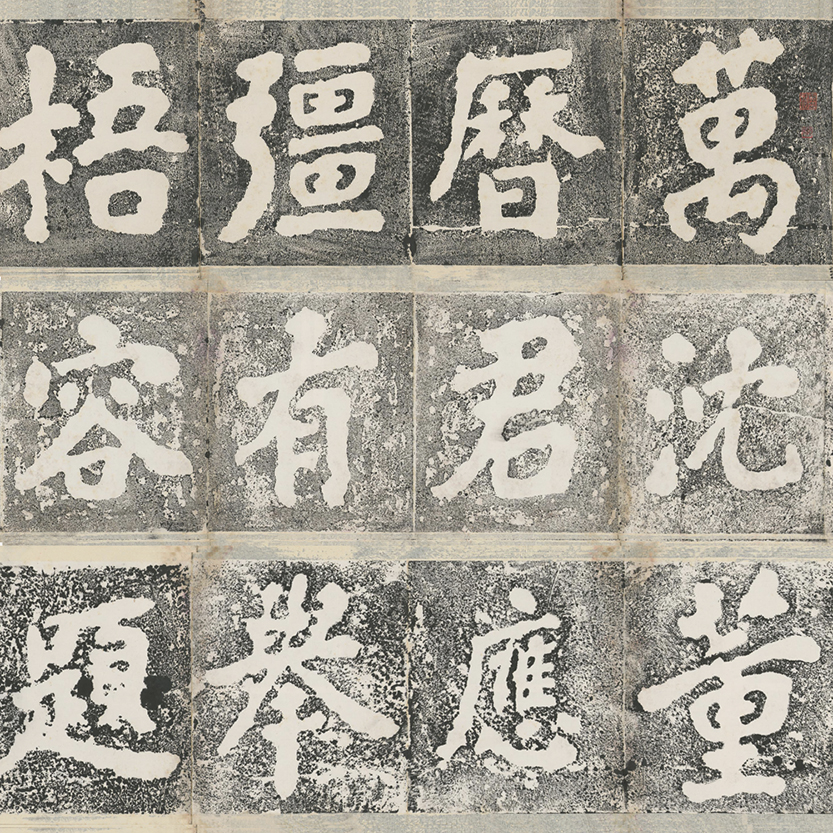 萬曆彊梧
沈君有容
董應舉題